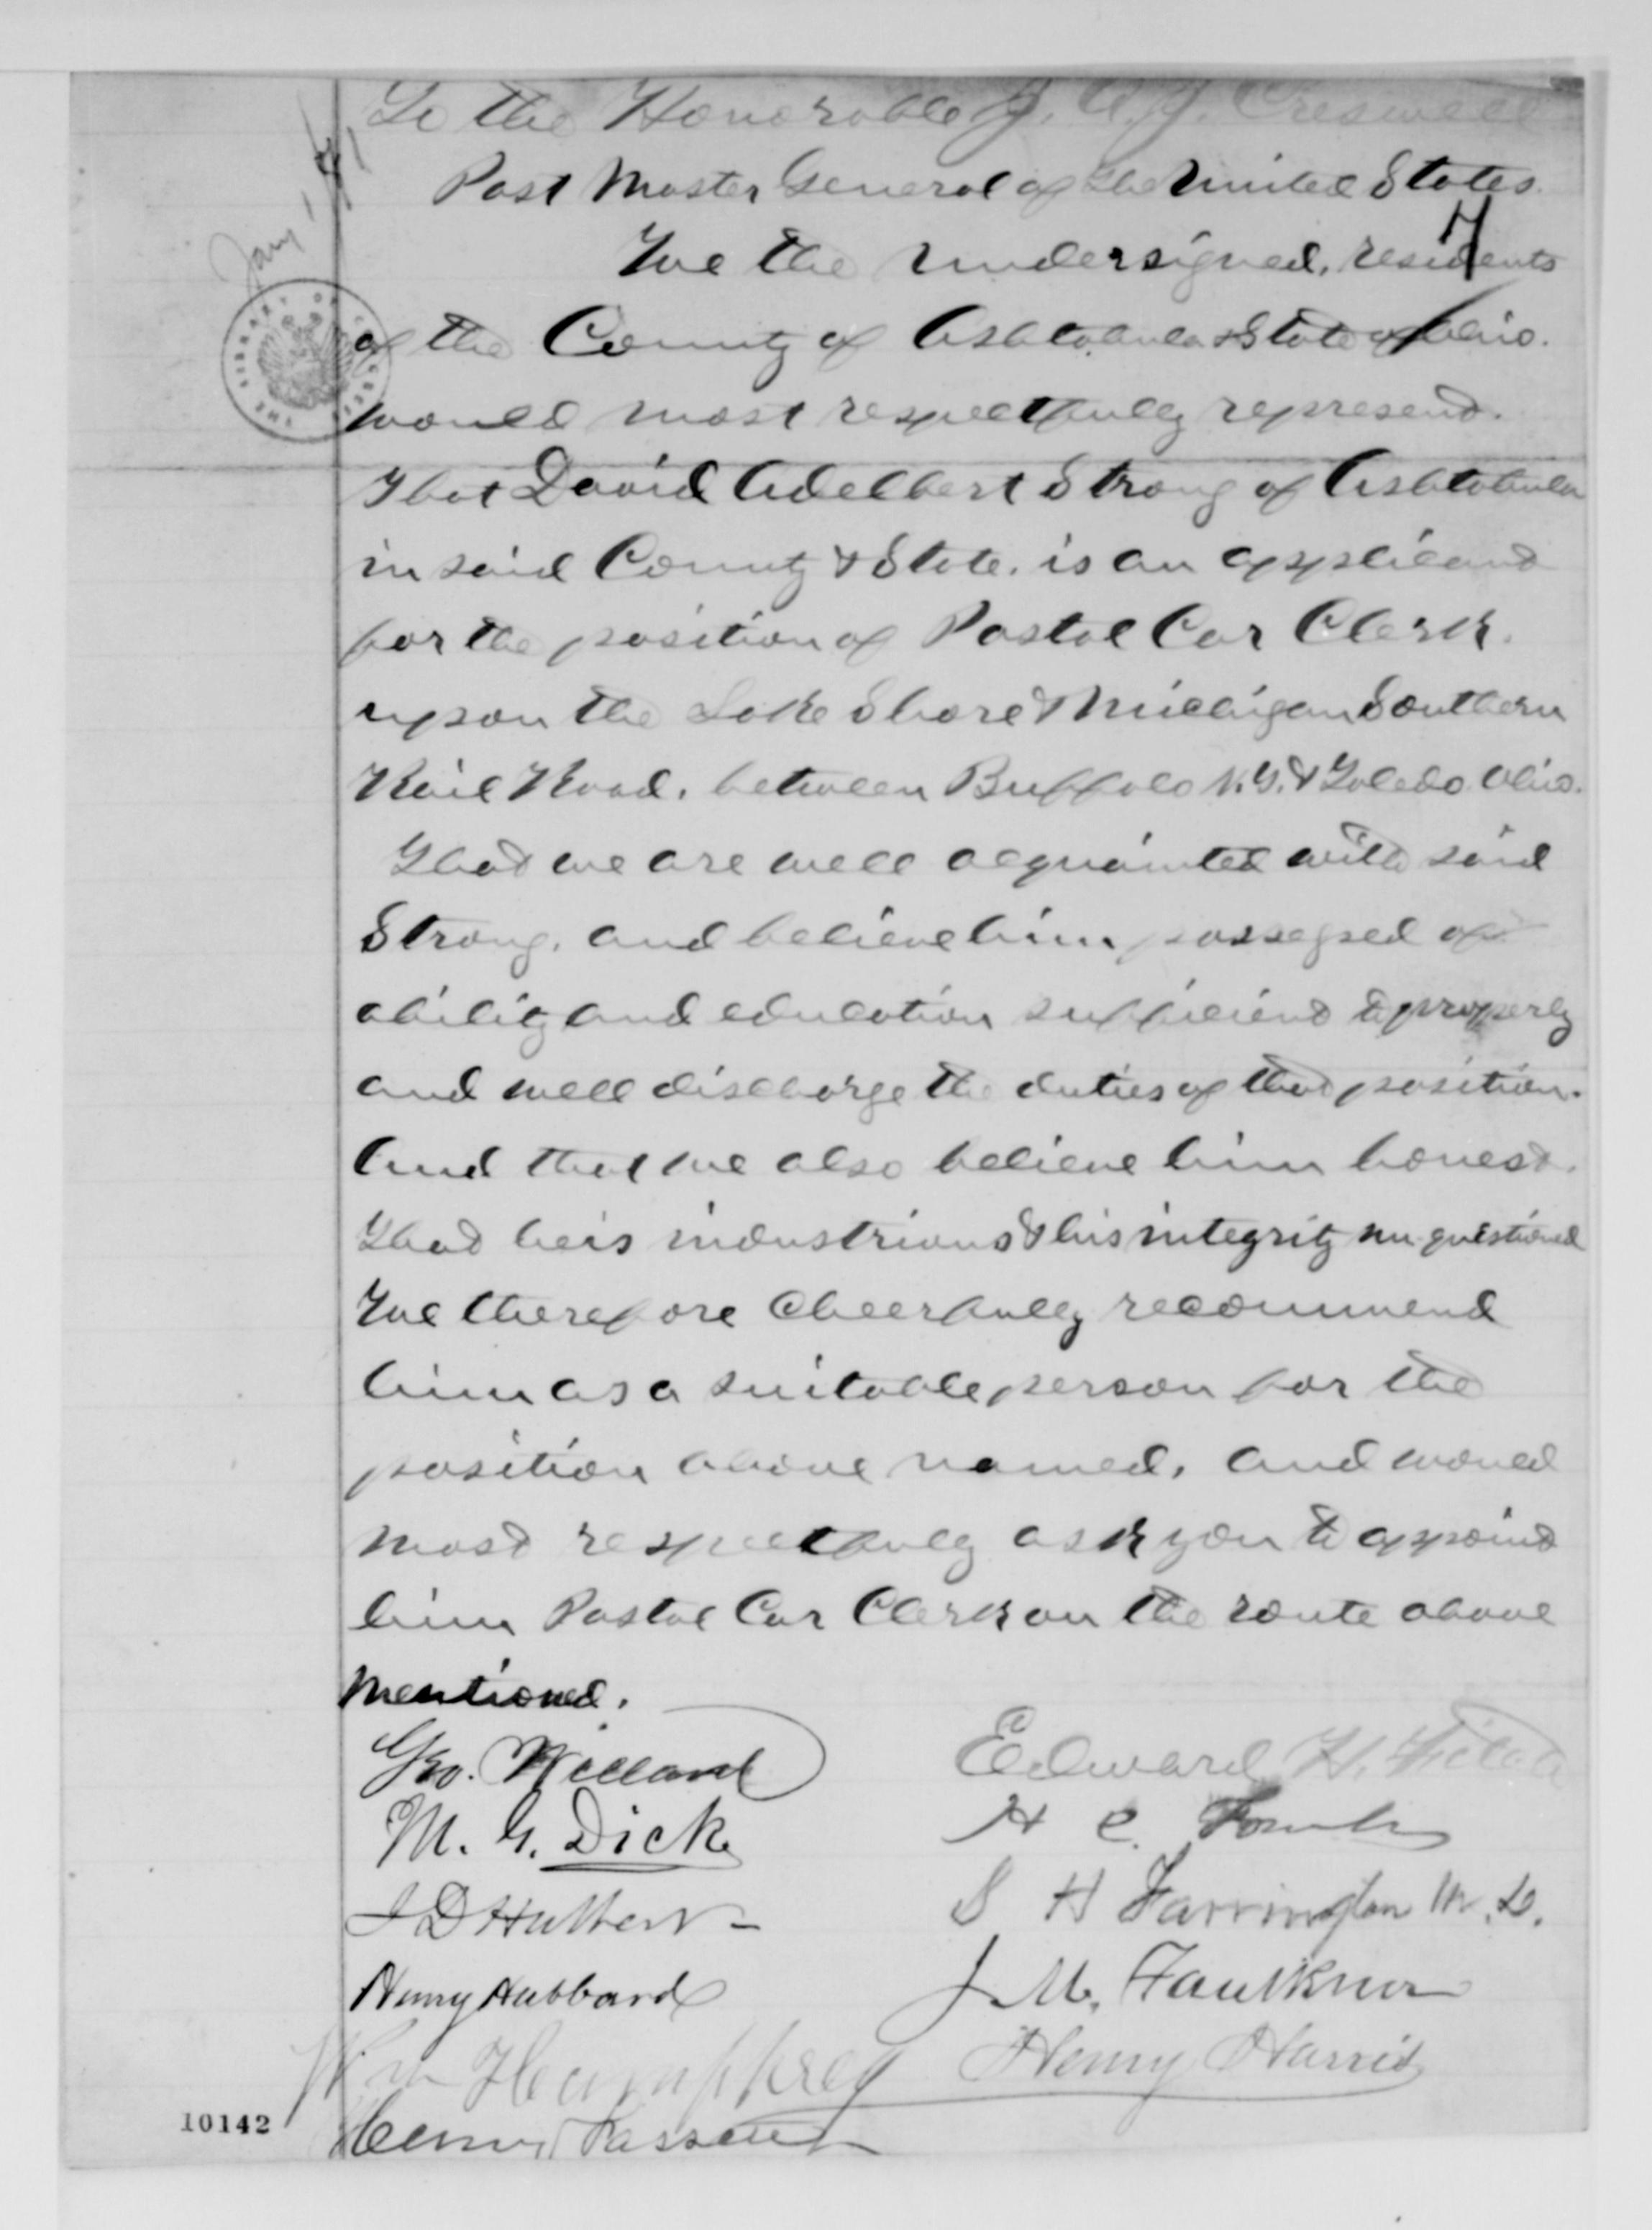 To the Honorable J. A. J. Creswell
Post Master General of the United States.
We the undersigned, residents
of the County of Ashtabula & State of Ohio.
would most respectfully represent.
That David Adelbert Strong of Ashtabula
in said County & State. is an applicant
for the position of Postal Car Clerk.
upon the Lake Shore & Michigan Southern
Rail Road. between Buffalo N.Y. & Toledo Ohio.
That we are well acquainted with said
Strong. and believe him possessed of
ability and education sufficient to properly
and well discharge the duties of that position.
And that we also believe him honest.
That he is industrious & his integrity un-questioned
We therefore Cheerfully recommend
him as a suitable person for the
position above named. and would
most respectfully ask you to appoint
him Postal Car Clerk on the route above
mentioned.
Geo. Willard
M. G. Dick
J D Hulbert
Henry Hubbard
Wm Humphrey
Henry Fassett
Edward H. Fitch
H C
S H Farrington M.D.
J. M. Faulkner
Henry Harris
Jany 1 71
7
THE LIBRARY OF CONGRESS
10142